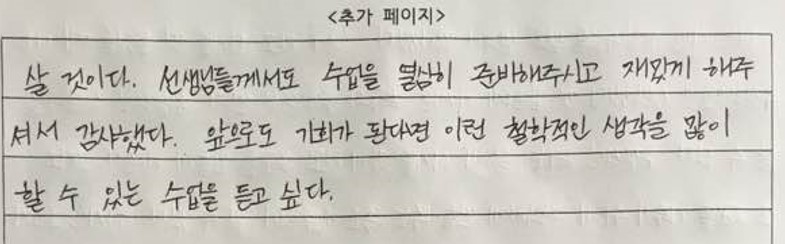 <추가 페이지>
살 것이다. 선생님들께서도 수업을 열심히 준비해주시고 재밌게 해주
셔서 감사했다. 앞으로도 기회가 된다면 이런 철학적인 생각을 많이
할 수 있는 수업을 듣고 싶다.